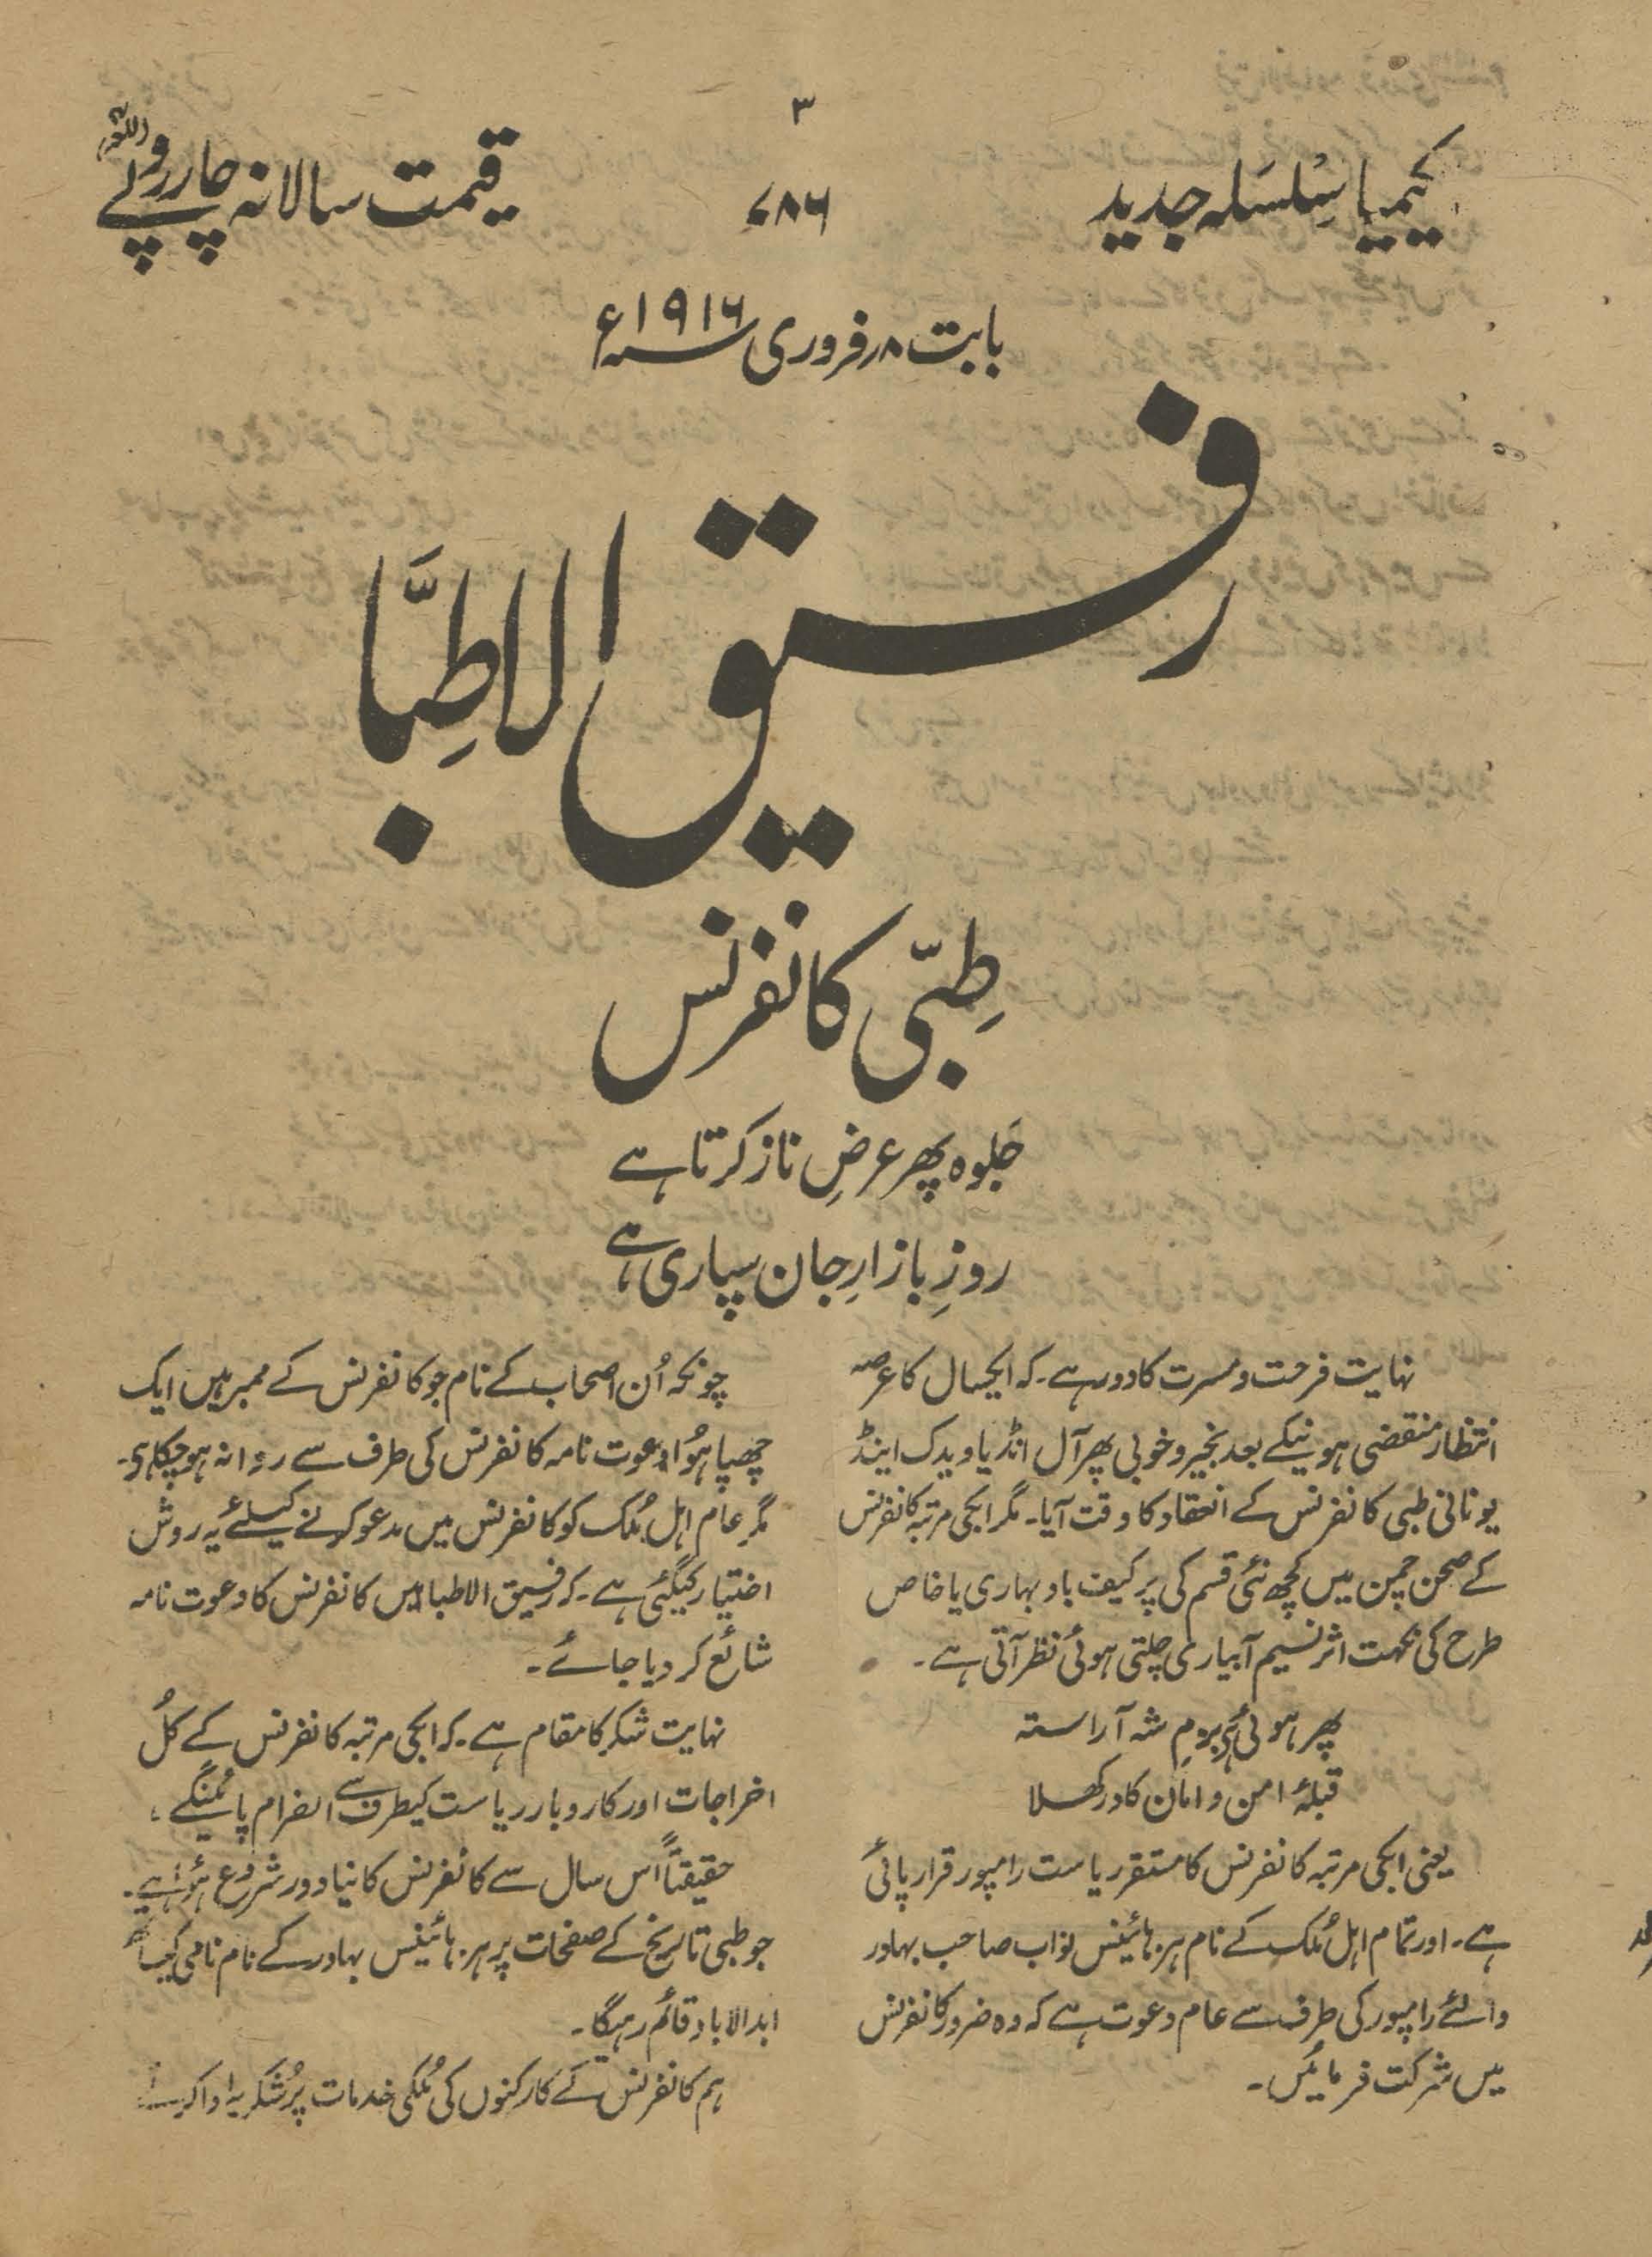 ۳
کیمیا سِلسَلہ جدید
۷۸۶
قیمت سالانہ چار روپے
بابت ۸ر فروری ۱۹۱۶ء
رفیق الاطِبَّا
طِبّی کانفرنس
جَلوہ پھر عرضِ ناز کرتا ہے
روزِ بازارِ جان سپاری ہے
نہایت فرحت و مسرت کا دور ہے۔ کہ ایکسال کا عرصہ
انتظار منقضی ہونیکے بعد بخیر و خوبی پھر آل انڈیا ویدک اینڈ
یونانی طبی کانفرنس کے انعقاد کا وقت آیا۔ مگر ابکی مرتبہ کانفرنس
کے صحن چمن میں کچھ نئی قسم کی پرکیف باد بہاری یا خاص
طرح کی نکہت اثر نسیم آبیاری چلتی ہوئی نظر آتی ہے۔
پھر ہوئی ہی بزمِ شہ آراستہ
قبلۂ امن و امان کا در کھلا
یعنی ابکی مرتبہ کانفرنس کا مستقر ریاست رامپور قرار پائی
ہے۔ اور تمام اہل مُلک کے نام ہز ہائینس نواب صاحب بہادر
والئے رامپور کی طرف سے عام دعوت ہے کہ وہ ضرور کانفرنس
میں شرکت فرمائیں۔
چونکہ اُن اصحاب کے نام جو کانفرنس کے ممبر ہیں ایک
چھپا ہُوا دعوت نامہ کانفرنس کی طرف سے روانہ ہو چکا ہی۔
مگر عام اہل مُلک کو کانفرنس میں مدعو کرنے کیلئے یہ روش
اختیار کیگئی ہے۔ کہ رفیق الاطبا میں کانفرنس کا دعوت نامہ
شائع کر دیا جائے۔
نہایت شکر کا مقام ہے۔ کہ ابکی مرتبہ کانفرنس کے کُل
اخراجات اور کاروبار ریاست کیطرف سے انصرام پائینگے،
حقیقتاً اس سال سے کانفرنس کا نیا دور شروع ہُوا ہے۔
جو طبی تاریخ کے صفحات پر ہز ہائینس بہادر کے نام نامی کیساتھ
ابد الاباد قائم رہیگا۔
ہم کانفرنس کے کارکنوں کی مُلکی خدمات پر شکریہ ادا